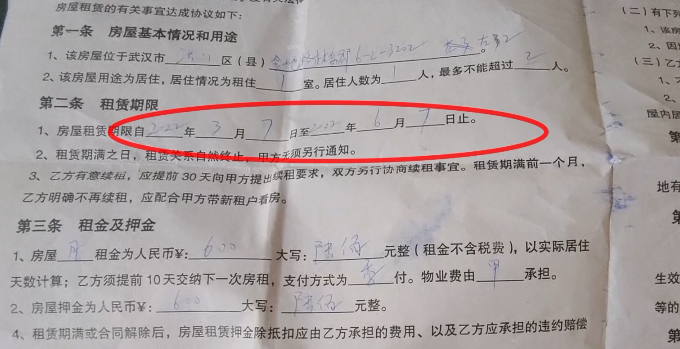 房屋租赁的有关事宜达成协议如下：
第一条 房屋基本情况和用途
1、房屋位于武汉市 洪山 区（县） 6-2-3202
2、该房屋用途为居住，居住情况为租住 1 室。居住人数为 1 人，最多不能超过 2 人。
第二条 租赁期限
1、房屋租赁期限自 2022 年 3 月 7 日至 2022 年 6 月 7 日止。
2、租赁期满之日，租赁关系自然终止，甲方无须另行通知。
3、乙方有意续租，应提前30天向甲方提出续租要求，双方另行协商续租事宜。租赁期满前一个月，
乙方明确不再续租，应配合甲方带新租户看房。
第三条 租金及押金
1、房屋 月 租金为人民币¥： 600 大写： 陆佰 元整（租金不含税费），以实际居住
天数计算；乙方须提前10天交纳下一次房租，支付方式为 季 付。物业费由 甲 承担。
2、房屋押金为人民币¥： 600 大写： 陆佰 元整。
4、租赁期满或合同解除后，房屋租赁押金除抵扣应由乙方承担的费用、以及乙方应承担的违约赔偿
（二）有下列
1、该房
2、因
（三）乙
1
屋内居
地有
第
生效
等的
第